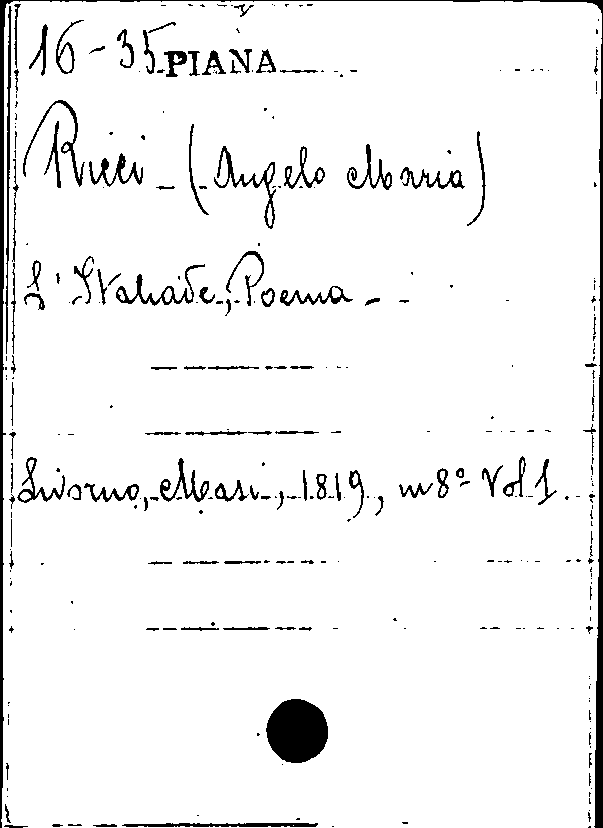 16-35 PIANA
Ricci - (Angelo Maria)
L'Italiade, Poema -
Livorno, Masi, 1819, in 8º Vol 1.